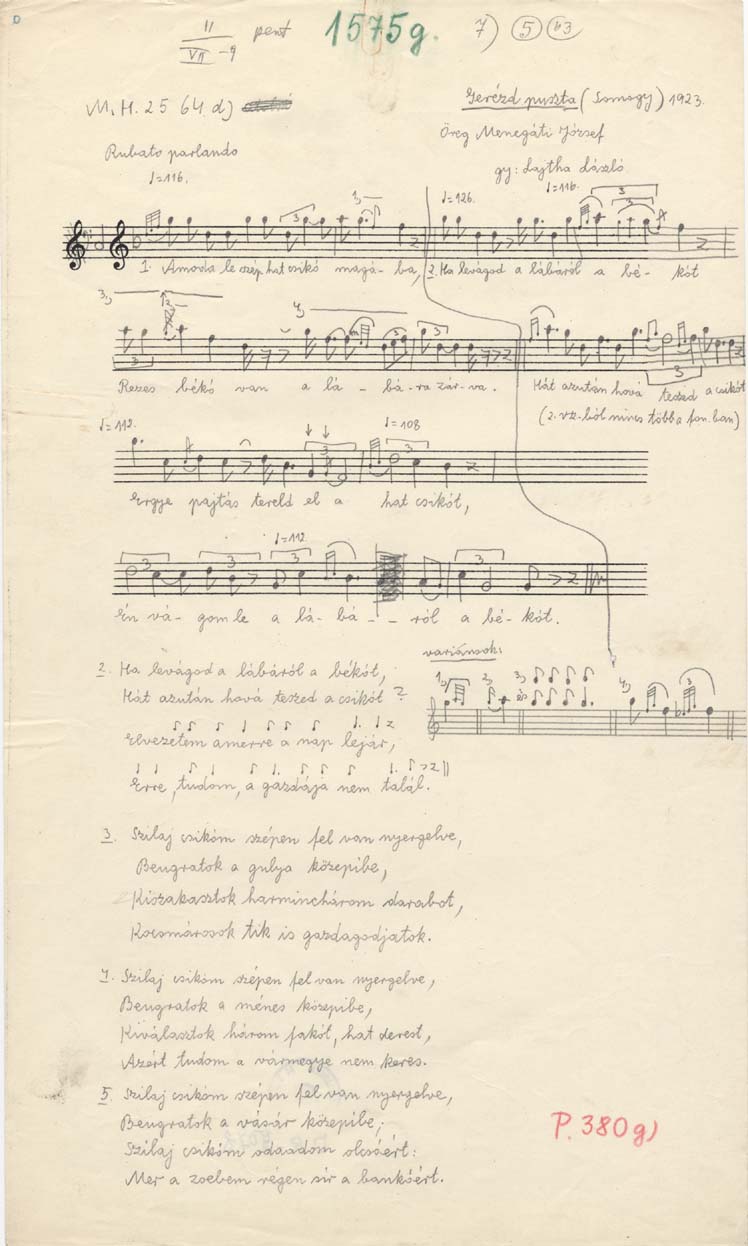 D
II
VII -9 pent 1575g. 7) 5 b3
M.H. 25 64 d)
Gerézd puszta (Somogy) 1923.
Öreg Menegáti József
gy: Lajtha László
Rubato parlando
♩=116.
1.)
♩=126.
♩=116.
3
3
3
1. Amoda le szép hat csikó magá-ba, 2. Ha levágod a lábáról a bé-kót
3.)
2.)
4.)
3
3
3
3
3
Rezes békó van a lá-bá-ra zár-va.
Hát azután hová teszed a csikót
(2. vsz.-ból nincs több a fon.ban)
♩=112.
3
♩=108
3
Ergye pajtás tereld el a hat csikót,
3
3
♩=112
3
3
Én vá-gom le a lá-bá--ról a bé-kót.
variánsok:
1.) 2.) 3.) és 4.) 3
2. Ha levágod a lábáról a békót,
Hát azután hová teszed a csikót?
Elvezetem amerre a nap lejár,
Erre, tudom, a gazdája nem talál.
3. Szilaj csikóm szépen fel van nyergelve,
Beugratok a gulya közepibe,
Kiszakasztok harminchárom darabot,
Kocsmárosok tik is gazdagodjatok.
4. Szilaj csikóm szépen fel van nyergelve,
Beugratok a ménes közepibe,
Kiválasztok három fakót, hat derest,
Azért tudom a vármegye nem keres.
5. Szilaj csikóm szépen fel van nyergelve,
Beugratok a vásár közepibe;
Szilaj csikóm odaadom olcsóért:
Mer a zsebem régen sír a bankóért.
P. 380g)